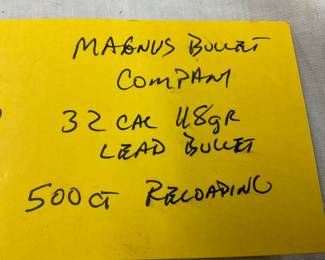 MAGNUS BULLET
COMPANY
32 CAL 118gR
LEAD BULLET
500 CT RELOADING